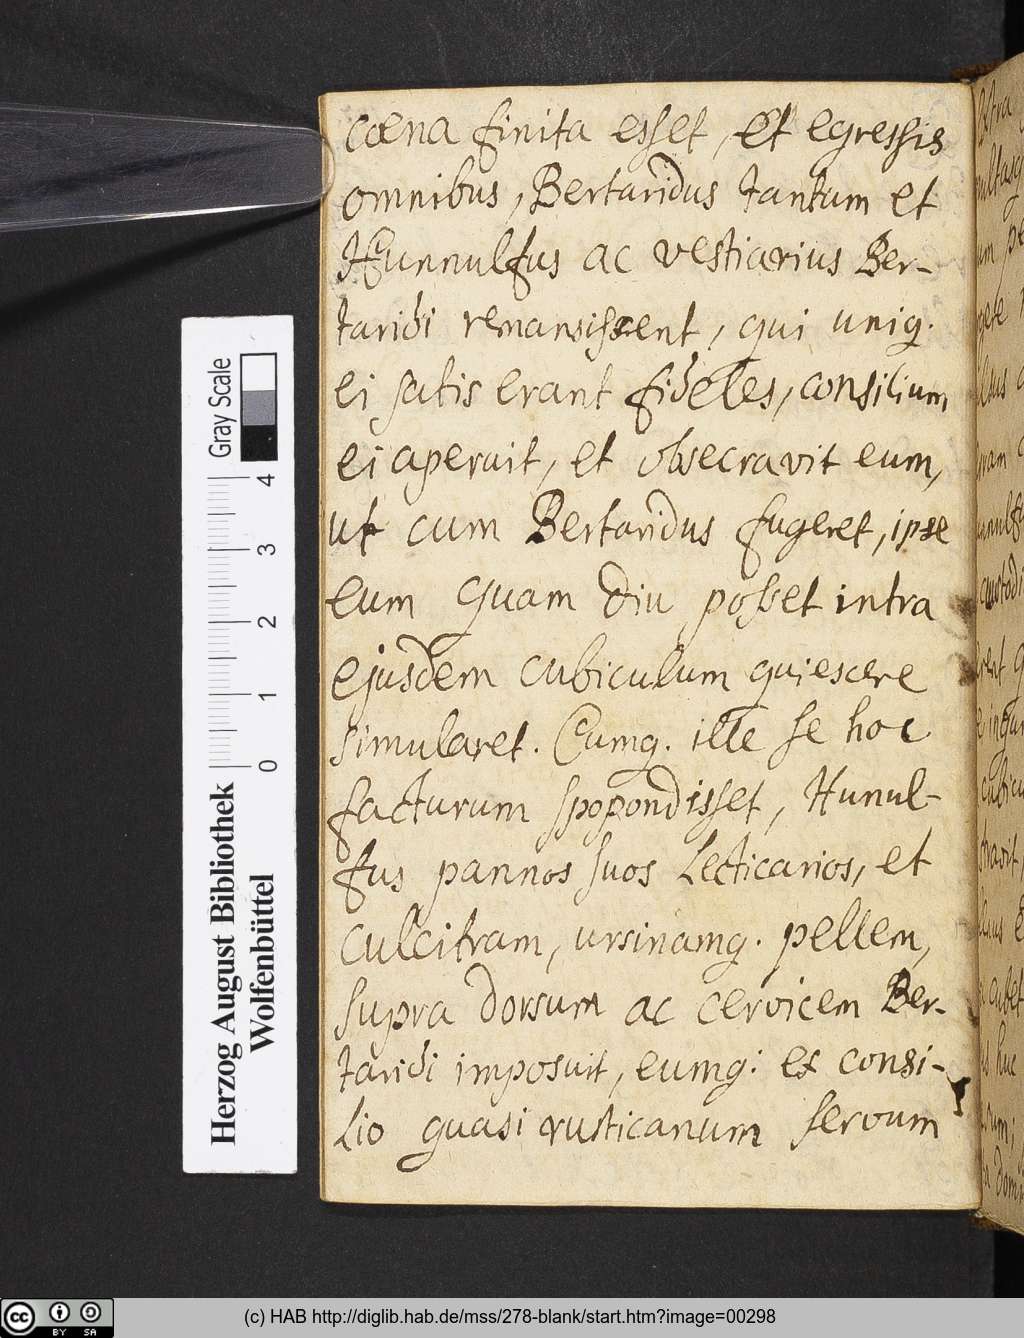 cœna finita esset, et egressis
omnibus, Bertaridus tantum et
Hunnulfus ac vestiarius Ber-
taridi remansissent, qui uniq.
ei satis erant fideles, consilium
ei aperuit, et obsecravit eum,
ut cum Bertaridus fugeret, ipse
eum quam diu posset intra
ejusdem cubiculum quiescere
simularet. Cumq. ille se hoc
facturum spopondisset, Hunul-
fus pannos suos lecticarios, et
culcitram, ursinamq. pellem,
supra dorsum ac cervicem Ber-
taridi imposuit, eumq. ex consi-
lio quasi rusticanum servum
Gray Scale
4
3
2
1
0
Herzog August Bibliothek
Wolfenbüttel
cc BY SA
(c) HAB http://diglib.hab.de/mss/278-blank/start.htm?image=00298